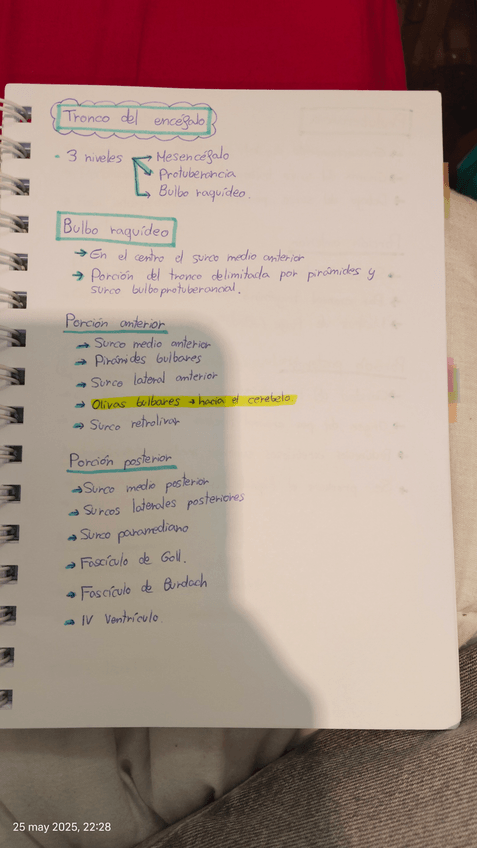 Tronco del encéfalo
- 3 niveles → Mesencéfalo
→ Protuberancia
→ Bulbo raquídeo.
Bulbo raquídeo
→ En el centro el surco medio anterior
→ Porción del tronco delimitada por pirámides y
surco bulboprotuberancial.
Porción anterior
→ Surco medio anterior
→ Pirámides bulbares
→ Surco lateral anterior
→ Olivas bulbares → hacia el cerebelo
→ Surco retrolivar
Porción posterior
→ Surco medio posterior
→ Surcos laterales posteriores
→ Surco paramediano
→ Fascículo de Goll.
→ Fascículo de Burdach
→ IV Ventrículo.
25 may 2025, 22:28